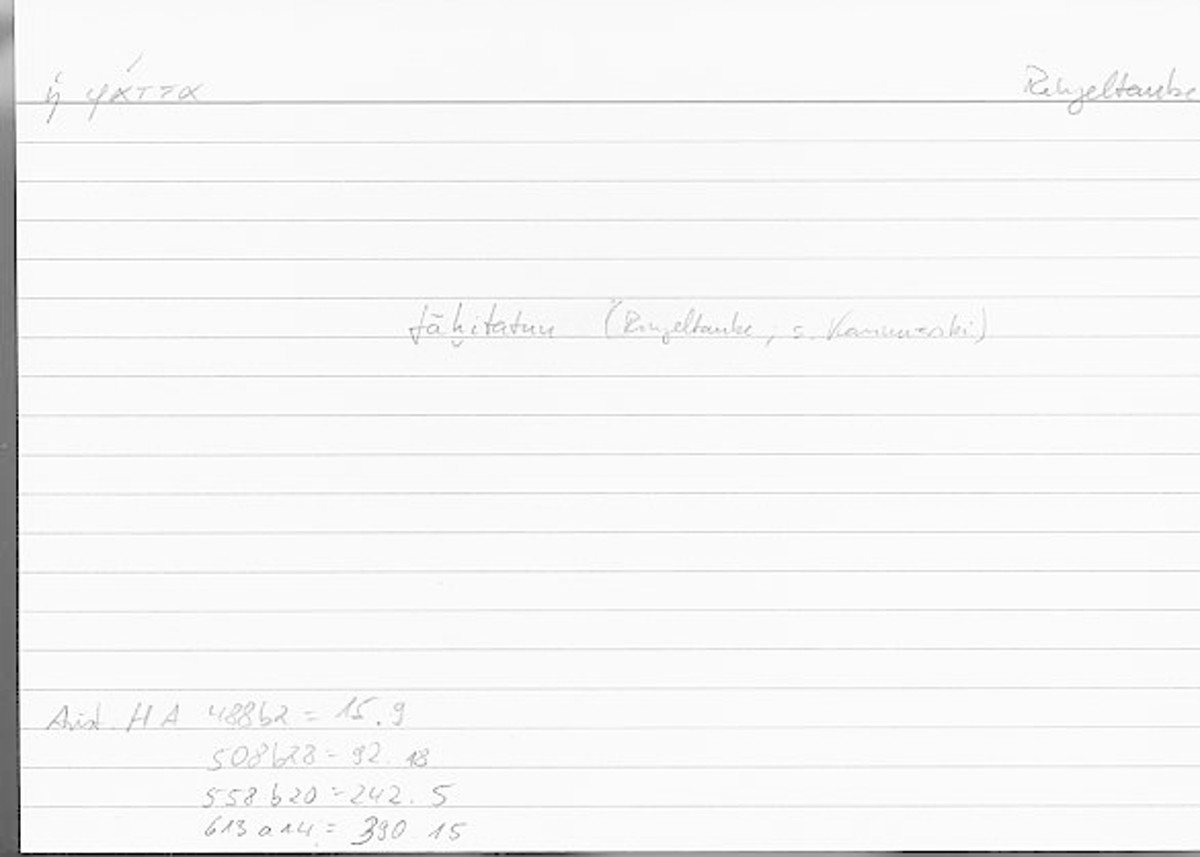 ἡ φάττα Ringeltaube
fāḫitatun (Ringeltaube, s. Kazimirski)
Arist. HA 488b2 = 15.9
508b28 = 92.18
558b20 = 242.5
613a14 = 390 15